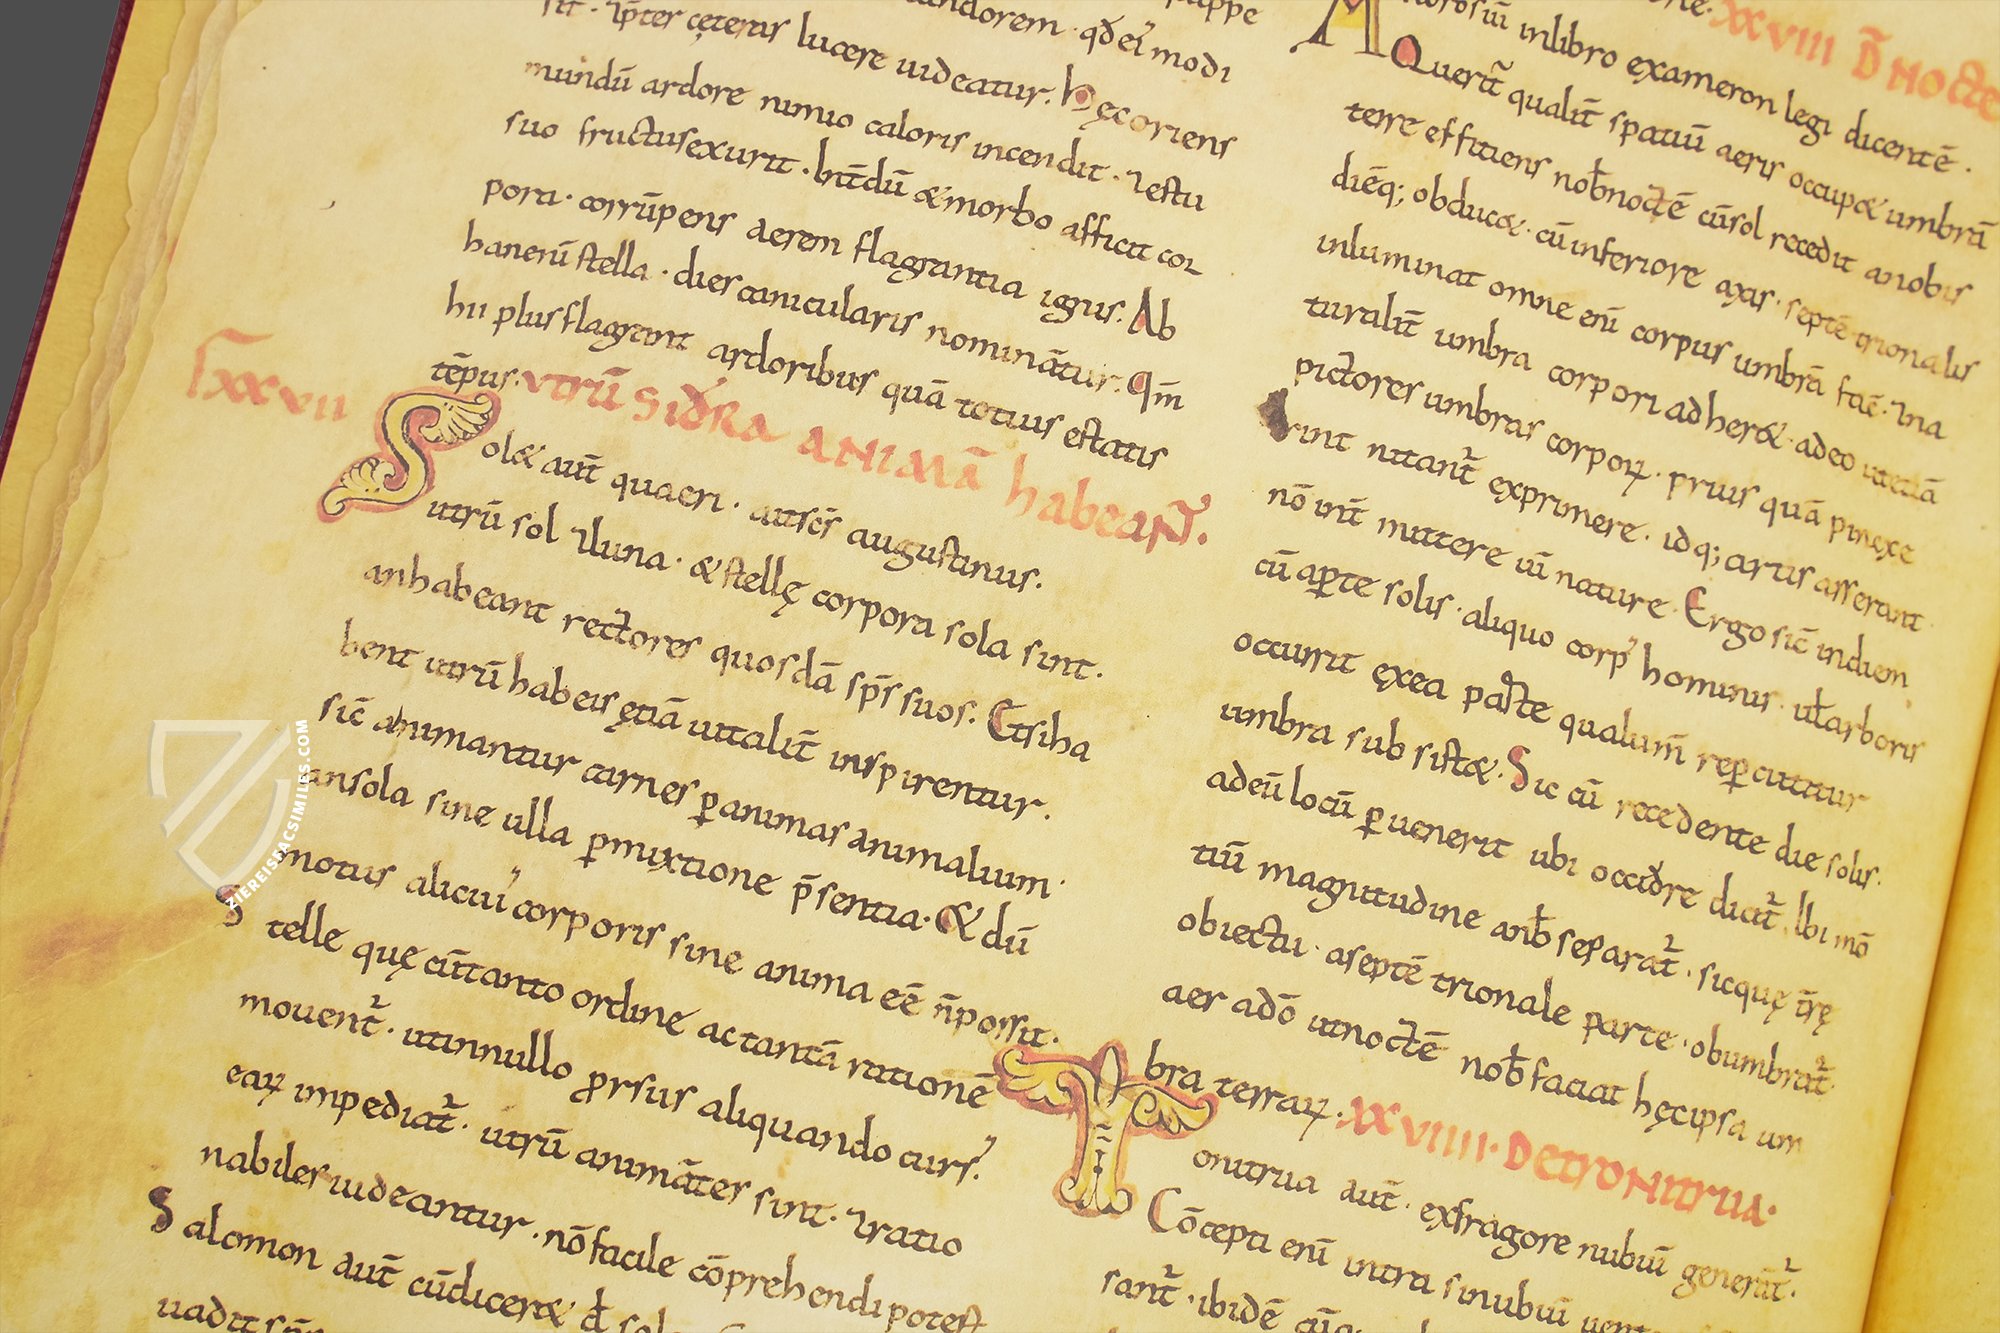 sit · ip̄ter cęteras lucere uideatur. Hęcoriens
mundū ardore nimio caloris incendit · ⁊estu
suo fructusexurit · Int̄dū & morbo afficit cor
pora · corrūpens aerem flagrantia ignis. Ab
hanenī stella · dies caniculares nominat̄ur. Qm̄
hii plus flagrant ardoribus quā totius estatis
tēpus.
XXVII
UTRŪ SIDERA ANIMĀ habeant.
Sol& aūt quaeri · aitscs̄ augustinus.
utrū sol ⁊luna · & stellę corpora sola sint.
anhabeant rectores quosdā sps̄ suos. Etsiha
bent utrū habeis ętiā uitalit̄ inspirentur.
sic̄ animantur carnes ꝑanimas animalium.
ansola sine ulla ꝑmixtione p̄sentia. & dū
motus alicui᾽ corporis sine anima eē n̄possit.
Stelle quę cūtanto ordine actantā rationē
mouent̄ · utinnullo ꝓrsus aliquando curs᾽
eaꝝ impediat̄ · utrū animātes sint · ⁊ratio
nabiles uideantur · nōfacile cōprehendi potest
Salomon aūt cūdicer&
uadit
XXVIII D̄ Nocte
inlibro exameron legi dicentē ·
Quert̄ qualit̄ spatiū aeris occup& umbrā
terre efficiens nob̄noctē cūsol recedit anobis
diēq; obduc& · cū inferiore axis · septētrionalis
inluminat omne enī corpus umbrā fac̄ · ⁊na
turalit̄ umbra corpori adher& · adeo utetiā
pictores umbras corpoꝝ · prius quā pinxe
rint nitant̄ exprimere · idq; artis asserant
nō int̄ mittere uī nature · Ergo sic̄ indiem
cū aꝑte solis · aliquo corp᾽ hominis · ul̄arboris
occurrit ęxea parte qualum̄ reꝑcutitur
umbra sub sist& · Sic cū recedente die solis.
adeū locū ꝑuenerit ubi occidere dicit̄ · Ibi mō
tiū magnitudine anb̄ separat̄ · sicquę tr̄ę
obiectu · aseptē trionale parte · obumbrat̄
aer adō utnoctē nob̄ faciat hęcipsa um
bra terraꝝ · XXVIIII · DETRONITRUA.
Tonitrua aūt · exfragore nubiū generat̄ ·
Cōcepti enī intra sinubiū
sant̄ · ibidē